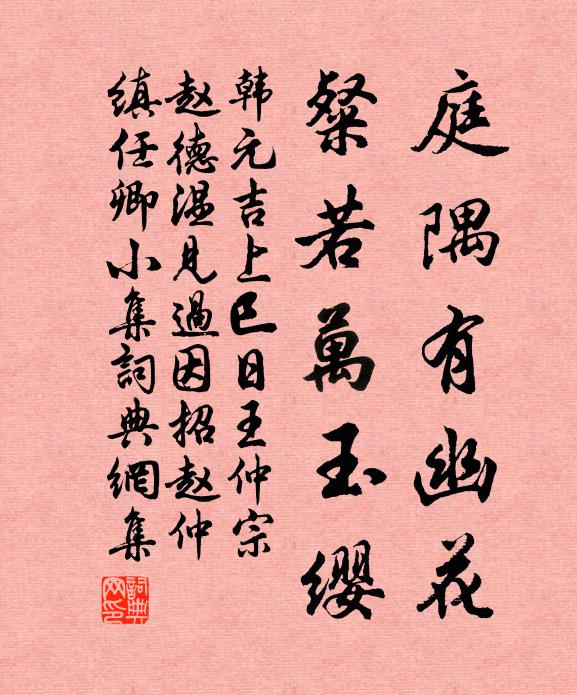 庭隅有幽花
粲若萬玉缨
韩元吉上巳日王仲宗
赵德温见過因招赵仲
缜任卿小集詞典網集
詞典網印